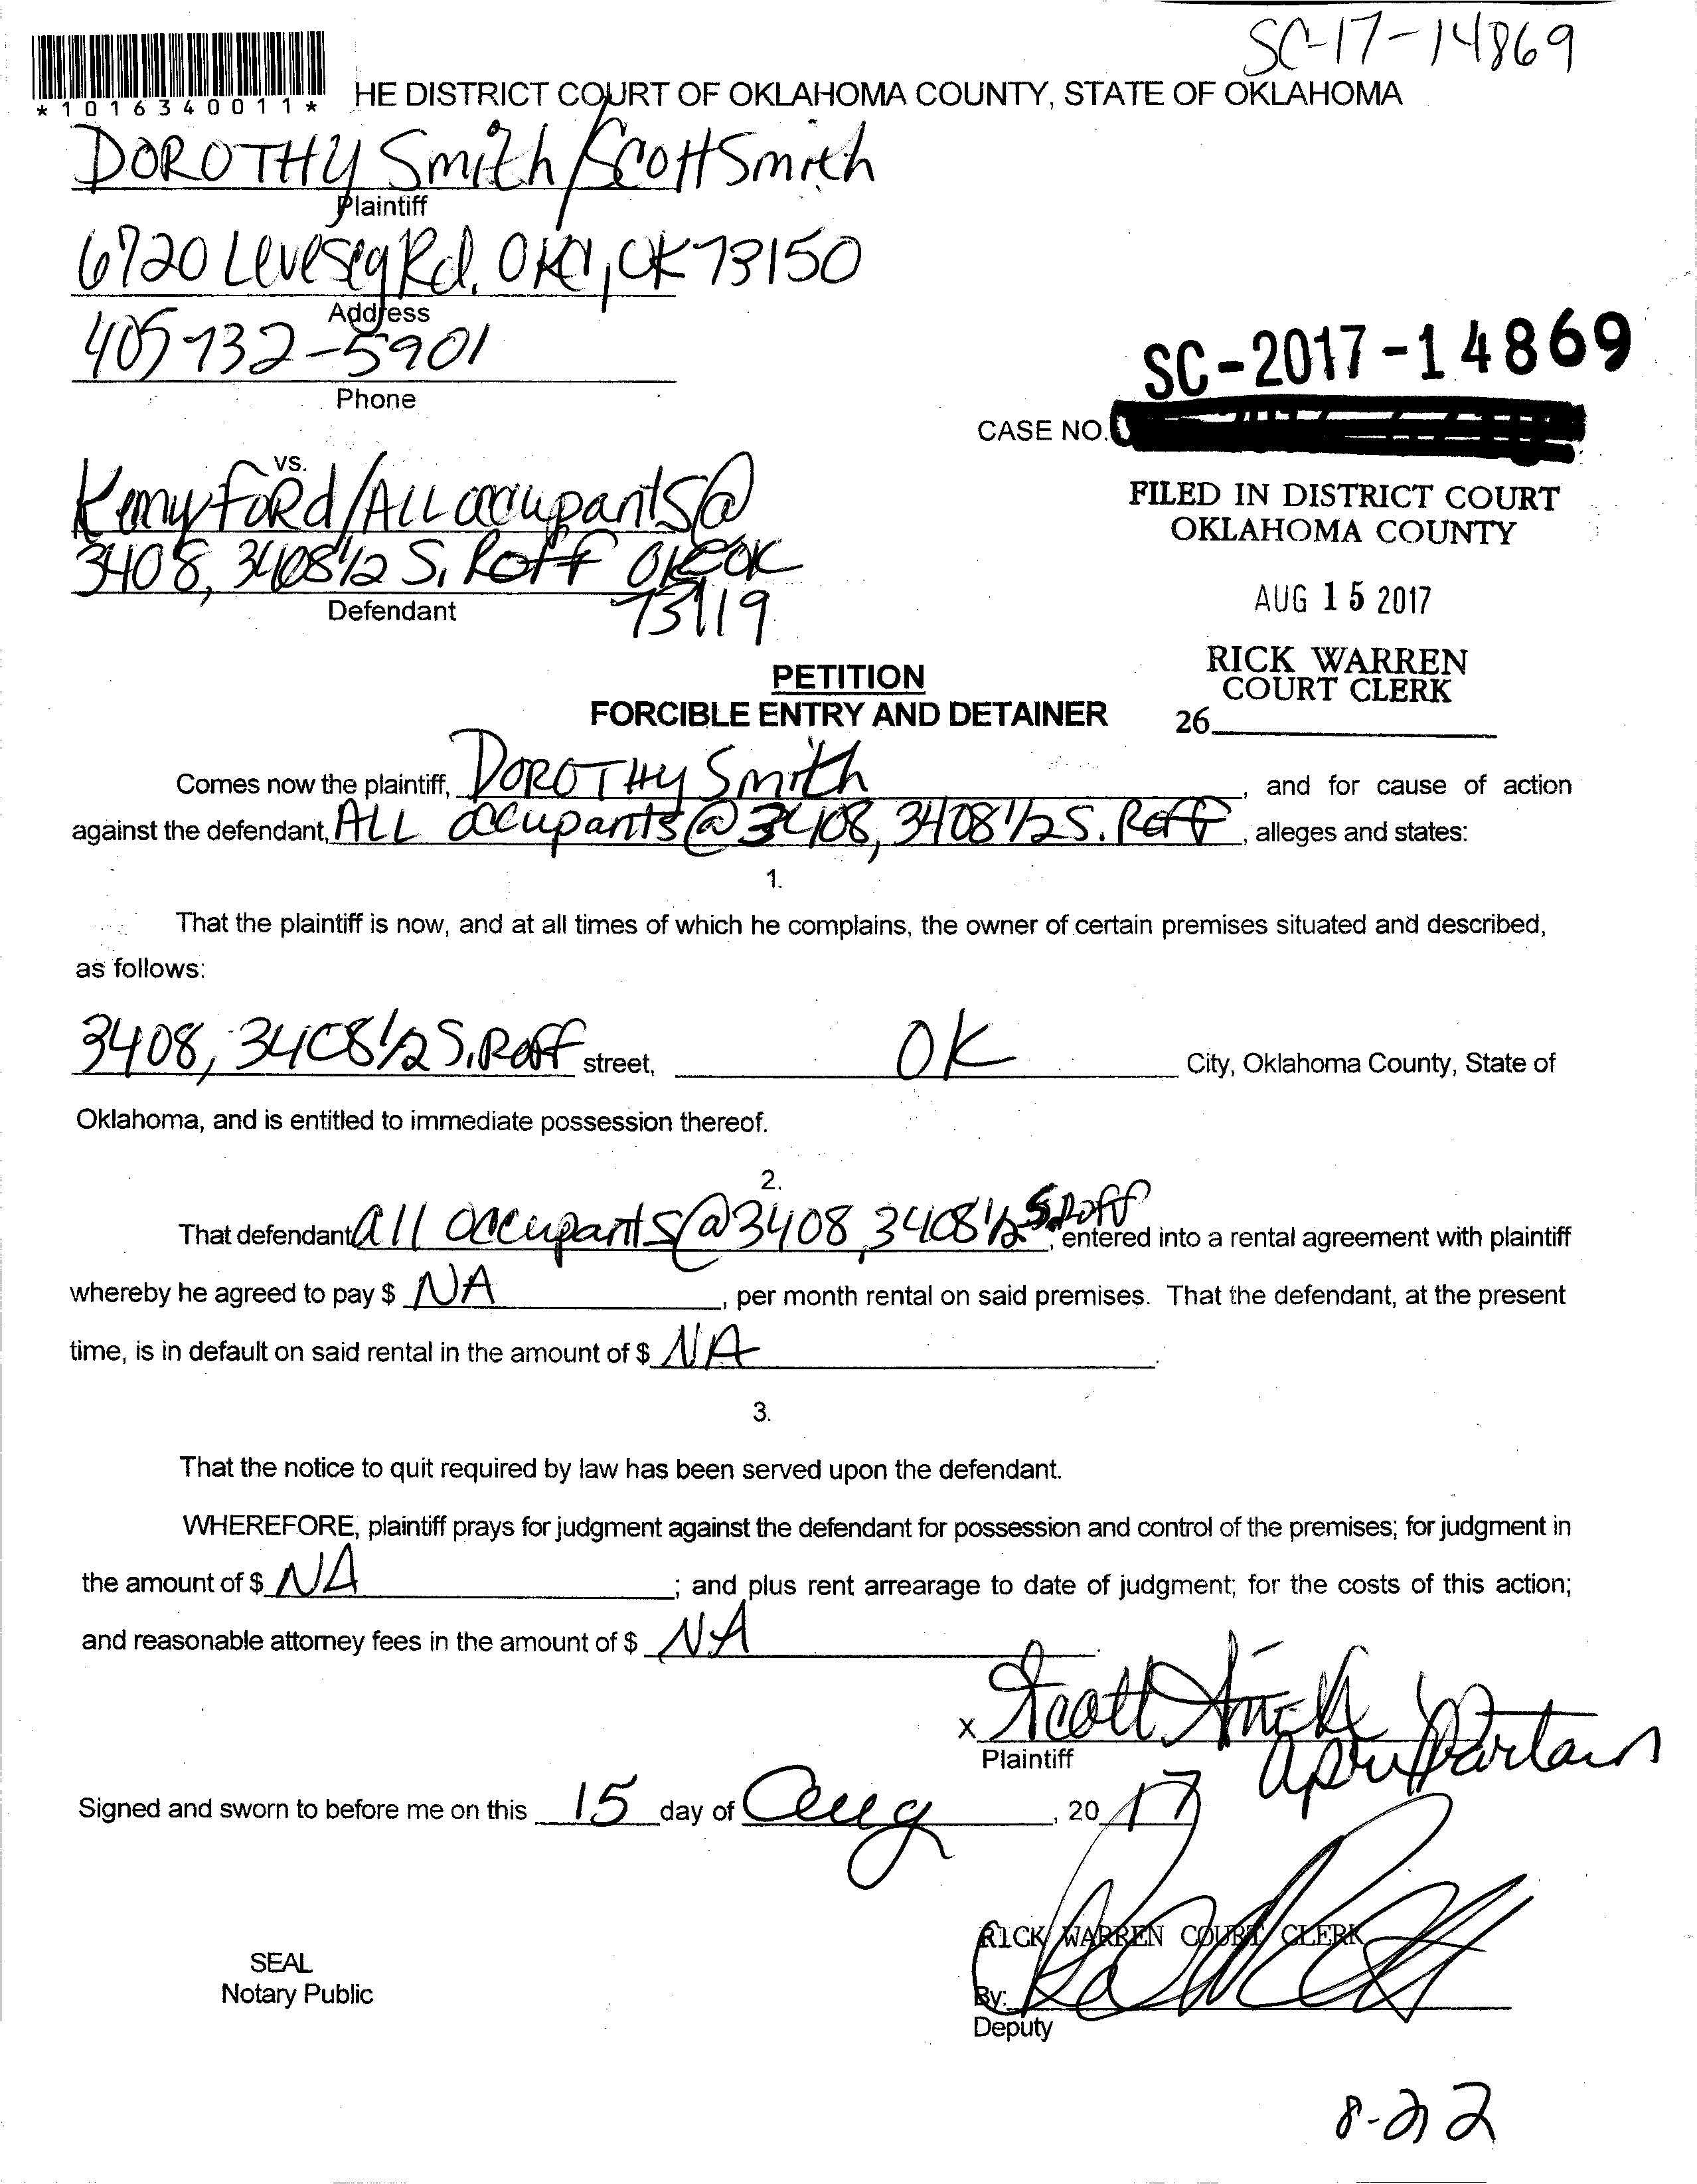 SC-17-14869
*1016340011*
HE DISTRICT COURT OF OKLAHOMA COUNTY, STATE OF OKLAHOMA
DOROTHY Smith/Scott Smith
Plaintiff
6720 Rd, OKC, OK 73150
Address
405 732-5901
Phone
SC-2017-14869
CASE NO.
vs.
Ford/ALL occupants@
3408, 3408 1/2 S. Roff OKC OK
73119
Defendant
FILED IN DISTRICT COURT
OKLAHOMA COUNTY
AUG 15 2017
RICK WARREN
COURT CLERK
26
PETITION
FORCIBLE ENTRY AND DETAINER
Comes now the plaintiff, DOROTHY Smith, and for cause of action
against the defendant, ALL occupants@3408, 3408 1/2 S. Roff, alleges and states:
1.
That the plaintiff is now, and at all times of which he complains, the owner of certain premises situated and described,
as follows:
3408, 3408 1/2 S. Roff street, OK City, Oklahoma County, State of
Oklahoma, and is entitled to immediate possession thereof.
2.
That defendant all occupants@3408, 3408 1/2 S. Roff, entered into a rental agreement with plaintiff
whereby he agreed to pay $ NA, per month rental on said premises. That the defendant, at the present
time, is in default on said rental in the amount of $ NA.
3.
That the notice to quit required by law has been served upon the defendant.
WHEREFORE, plaintiff prays for judgment against the defendant for possession and control of the premises; for judgment in
the amount of $ NA; and plus rent arrearage to date of judgment; for the costs of this action;
and reasonable attorney fees in the amount of $ NA.
X Scott Smith
Plaintiff
Signed and sworn to before me on this 15 day of Aug, 20 17
RICK WARREN COURT CLERK
SEAL
Notary Public
By:
Deputy
8-22